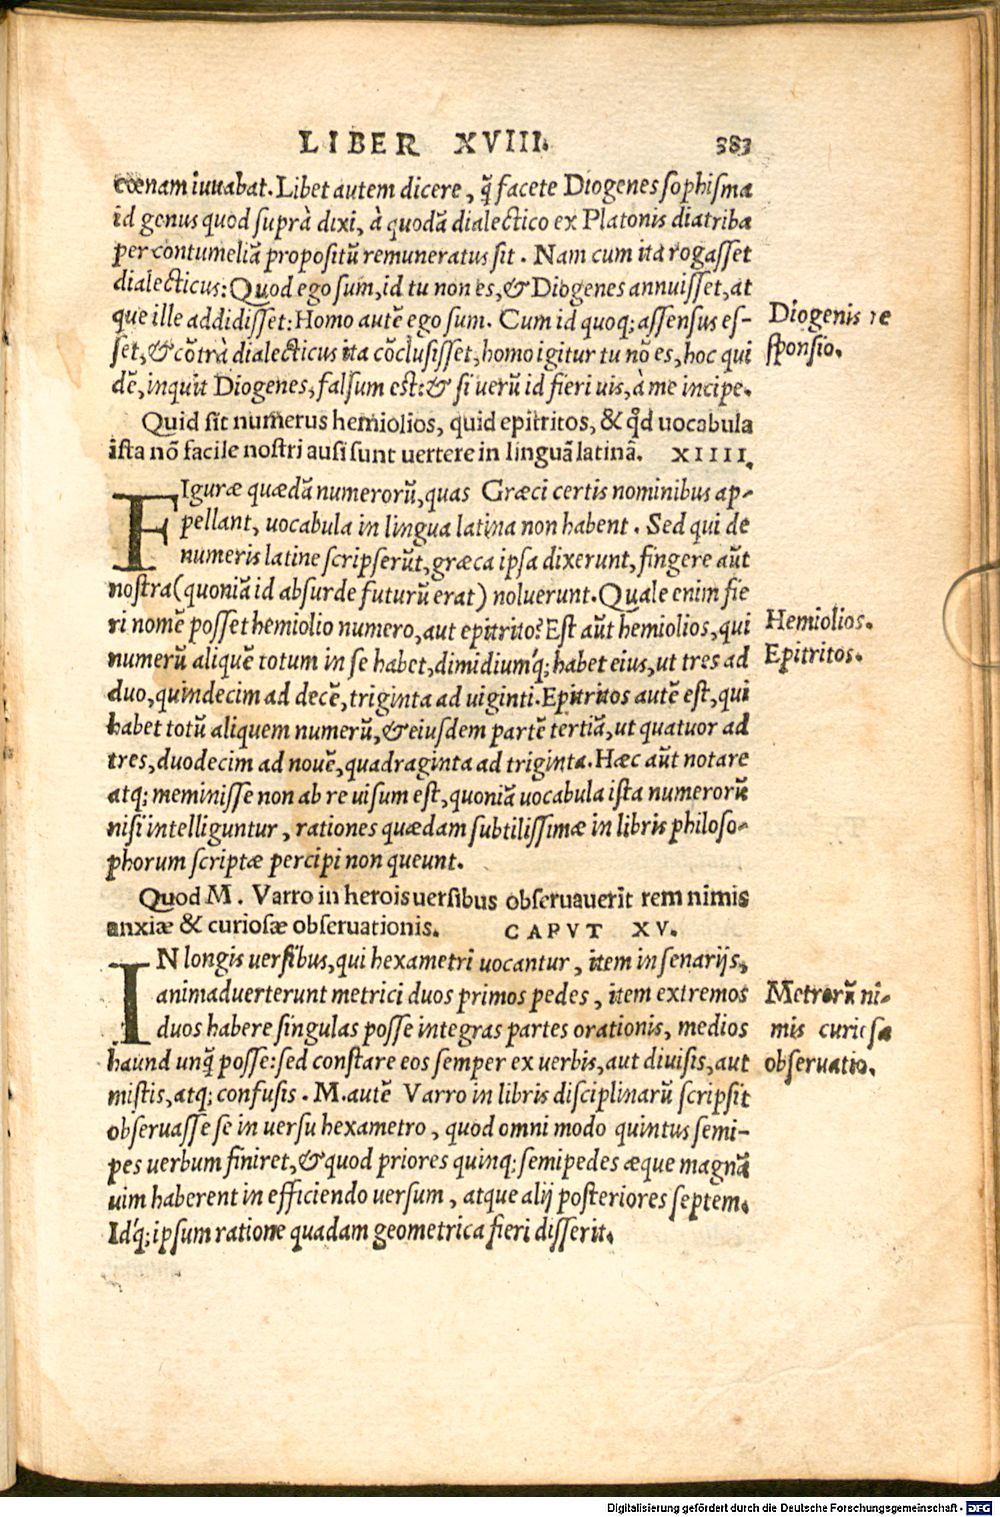 LIBER XVIII. 383
cœnam iuuabat. Libet autem dicere, q̃ facete Diogenes sophisma
id genus quod suprà dixi, à quodã dialectico ex Platonis diatriba
per contumeliã propositũ remuneratus sit. Nam cum ita rogasset
dialecticus: Quod ego sum, id tu non es, & Diogenes annuisset, at
que ille addidisset: Homo autẽ ego sum. Cum id quoq; assensus es-
set, & cõtrà dialecticus ita cõclusisset, homo igitur tu nõ es, hoc qui
dẽ, inquit Diogenes, falsum est: & si uerũ id fieri uis, à me incipe.
Diogenis re
sponsio.
Quid sit numerus hemiolios, quid epitritos, & qd̃ uocabula
ista nõ facile nostri ausi sunt uertere in linguã latinã. XIIII.
FIguræ quædã numerorũ, quas Græci certis nominibus ap-
pellant, uocabula in lingua latina non habent. Sed qui de
numeris latine scripserũt, græca ipsa dixerunt, fingere aũt
nostra (quoniã id absurde futurũ erat) noluerunt. Quale enim fie
ri nomẽ posset hemiolio numero, aut epitrito? Est aũt hemiolios, qui
numerũ aliquẽ totum in se habet, dimidiumq́; habet eius, ut tres ad
duo, quindecim ad decẽ, triginta ad uiginti. Epitritos autẽ est, qui
habet totũ aliquem numerũ, & eiusdem partẽ tertiã, ut quatuor ad
tres, duodecim ad nouẽ, quadraginta ad triginta. Hæc aũt notare
atq; meminisse non ab re uisum est, quoniã uocabula ista numerorũ
nisi intelliguntur, rationes quædam subtilissimæ in libris philoso-
phorum scriptæ percipi non queunt.
Hemiolios.
Epitritos.
Quod M. Varro in herois uersibus obseruauerit rem nimis
anxiæ & curiosæ obseruationis. CAPVT XV.
IN longis uersibus, qui hexametri uocantur, item in senarijs,
animaduerterunt metrici duos primos pedes, item extremos
duos habere singulas posse integras partes orationis, medios
haund unq̃ posse: sed constare eos semper ex uerbis, aut diuisis, aut
mistis, atq; confusis. M. autẽ Varro in libris disciplinarũ scripsit
obseruasse se in uersu hexametro, quod omni modo quintus semi-
pes uerbum finiret, & quod priores quinq; semipedes æque magnã
uim haberent in efficiendo uersum, atque alij posteriores septem.
Idq́; ipsum ratione quadam geometrica fieri disserit.
Metrorũ ni-
mis curiosa
obseruatio.
Digitalisierung gefördert durch die Deutsche Forschungsgemeinschaft - DFG